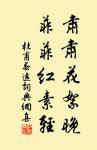 肅肅花絮晚
菲菲紅素輕
杜甫春遠詞典網集